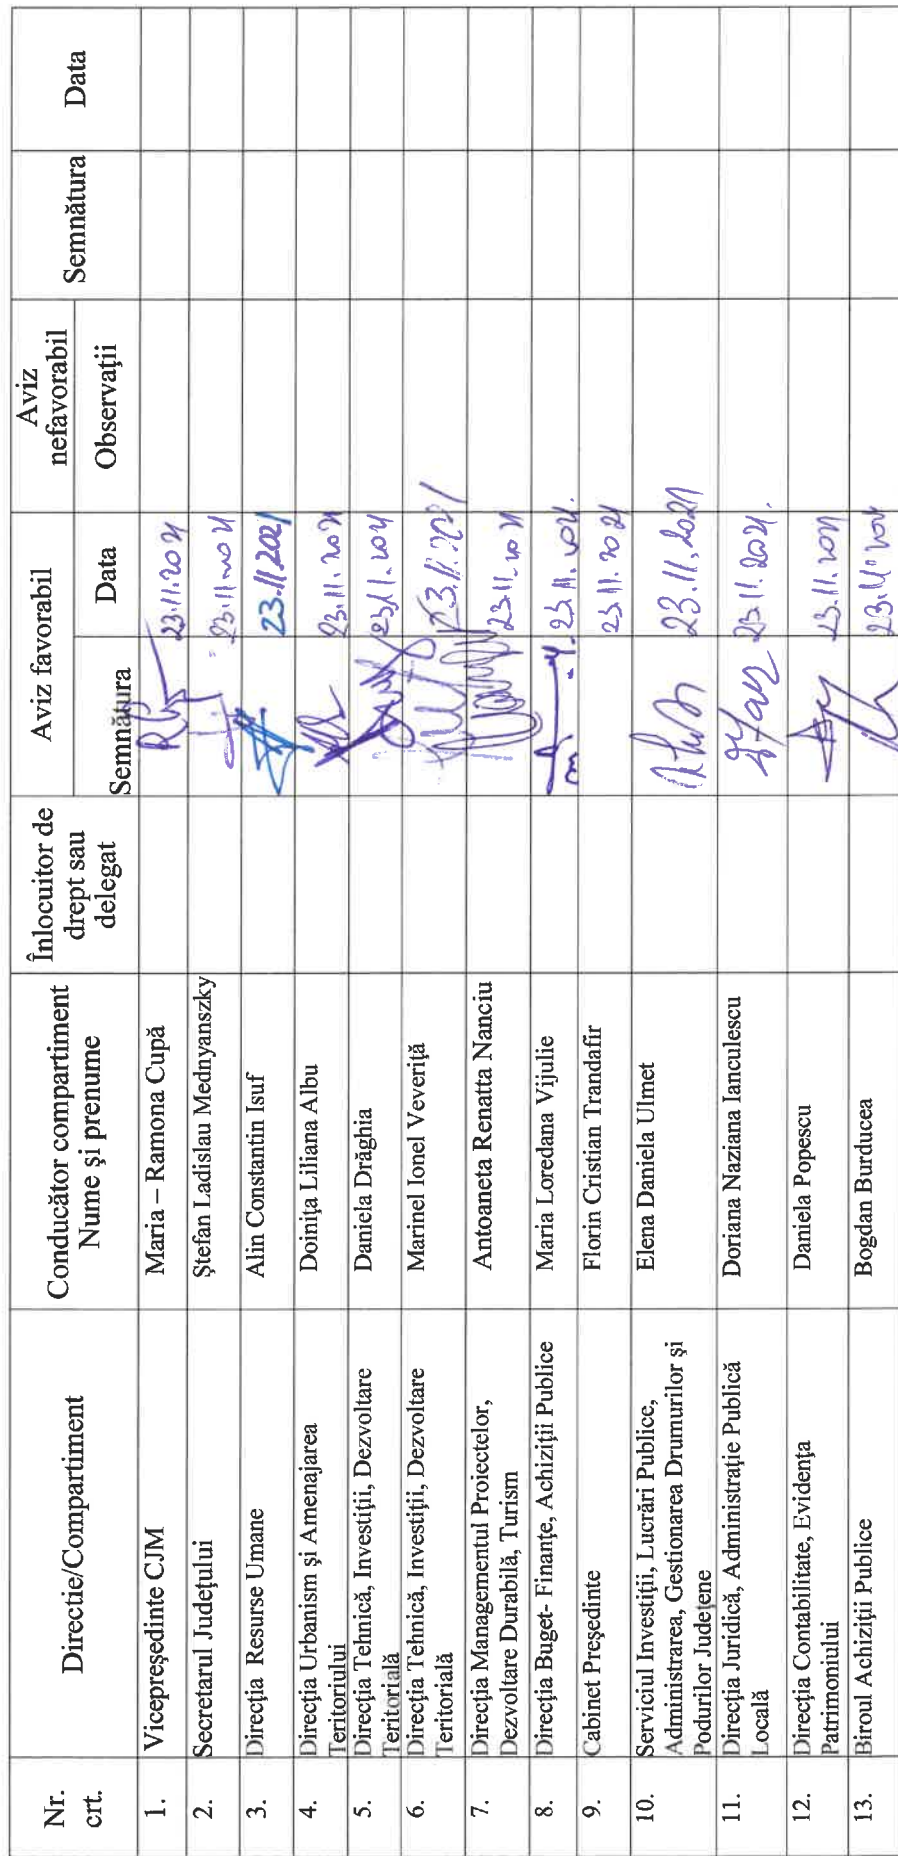 Nr. crt.
Directie/Compartiment
Conducător compartiment
Nume şi prenume
Înlocuitor de drept sau delegat
Aviz favorabil
Aviz nefavorabil
Semnătura
Data
Semnătura
Data
Observaţii
1. Vicepreşedinte CJM Maria – Ramona Cupă 23.11.2021
2. Secretarul Judeţului Ştefan Ladislau Mednyanszky 23.11.2021
3. Direcţia Resurse Umane Alin Constantin Isuf 23.11.2021
4. Direcţia Urbanism şi Amenajarea
Teritoriului Doiniţa Liliana Albu 23.11.2021
5. Direcţia Tehnică, Investiţii, Dezvoltare
Teritorială Daniela Drăghia 23.11.2021
6. Direcţia Tehnică, Investiţii, Dezvoltare
Teritorială Marinel Ionel Veveriţă 23.11.2021
7. Direcţia Managementul Proiectelor,
Dezvoltare Durabilă, Turism Antoaneta Renatta Nanciu 23.11.2021
8. Direcţia Buget- Finanţe, Achiziţii Publice Maria Loredana Vijulie 23.11.2021.
9. Cabinet Preşedinte Florin Cristian Trandafir 23.11.2021
10. Serviciul Investiţii, Lucrări Publice,
Administrarea, Gestionarea Drumurilor şi
Podurilor Judeţene Elena Daniela Ulmet 23.11.2021
11. Direcţia Juridică, Administraţie Publică
Locală Doriana Naziana Ianculescu 23.11.2021.
12. Direcţia Contabilitate, Evidenţa
Patrimoniului Daniela Popescu 23.11.2021
13. Biroul Achiziţii Publice Bogdan Burducea 23.11.2021